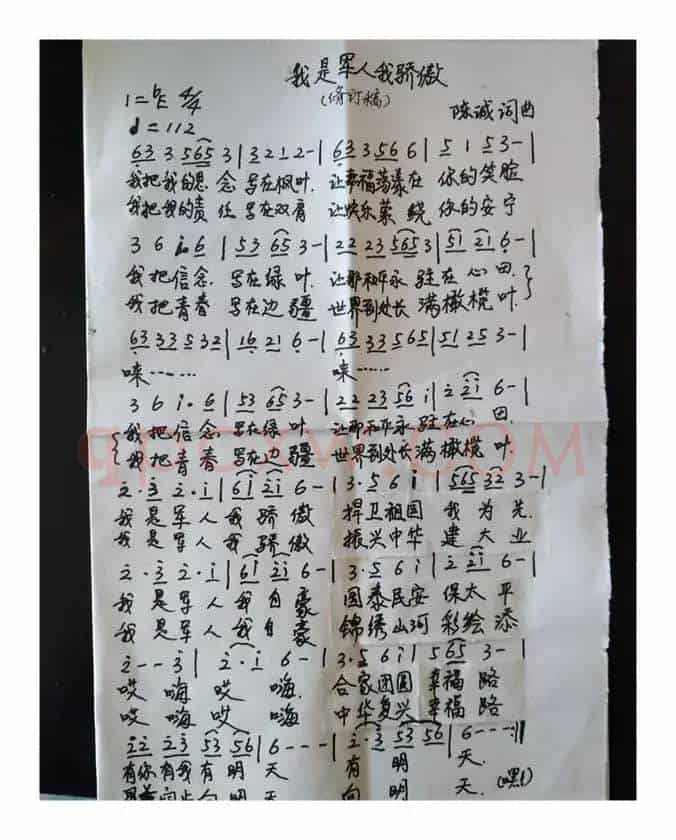 我是军人我骄傲
(修订稿)
1=♭E 4/4
陈诚 词曲
♩=112
63 3 565 3 | 3 2 1 2 - | 63 3 56 6 | 5 1 5 3 - |
我把我的思 念 写在枫叶. 让幸福荡漾在 你的笑脸
我把我的责 任 写在双肩 让快乐萦 绕 你的安宁
3 6 i. 6 | 53 65 3 - | 22 23 565 3 | 51 21 6 - |
我把信念 写在绿叶. 让那和平永 驻在 心 田.
我把青春 写在边疆 世界到处长 满橄榄 叶.
63 33 5 32 | 16 21 6 - | 63 33 565 | 51 25 3 - |
唻…… 唻……
3 6 i. 6 | 53 65 3 - | 22 23 56 i | 2 2i 6 - |
我把信念 写在绿叶 让那和平永 驻在心 田.
我把青春 写在边疆 世界到处长 满橄榄 叶
2. 3 2. i | 6i 2i 6 - | 3. 5 6 i | 565 32 3 - |
我是军人我骄傲 捍卫祖国 我为先.
我是军人我骄傲 振兴中华 建大业
2. 3 2. i | 6i 2i 6 - | 3. 5 6 i | 2 2i 6 - |
我是军人我自豪 国泰民安 保太平
我是军人我自豪 锦绣山河 彩绘添
2 - - 3 | 2. i 6 - | 3. 5 6 i | 5 65 3 - |
哎 嗨 哎 嗨. 合家团圆 幸福路
哎 嗨 哎 嗨 中华复兴 幸福路
22 23 53 56 | 6 - - - | 2. 3 53 56 | 6 - - - :||
有你有我有明 天 有 明 天.
向 明 天 向 明 天. (嘿!)